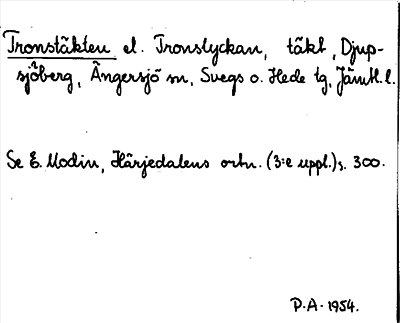 Tronstäkten el. Tronslyckan, täkt, Djup-
sjöberg, Ängersjö sn, Svegs o. Hede tg, Jämtl. l.
Se E. Modin, Härjedalens ortn. (3:e uppl.) s. 300.
P.A. 1954.